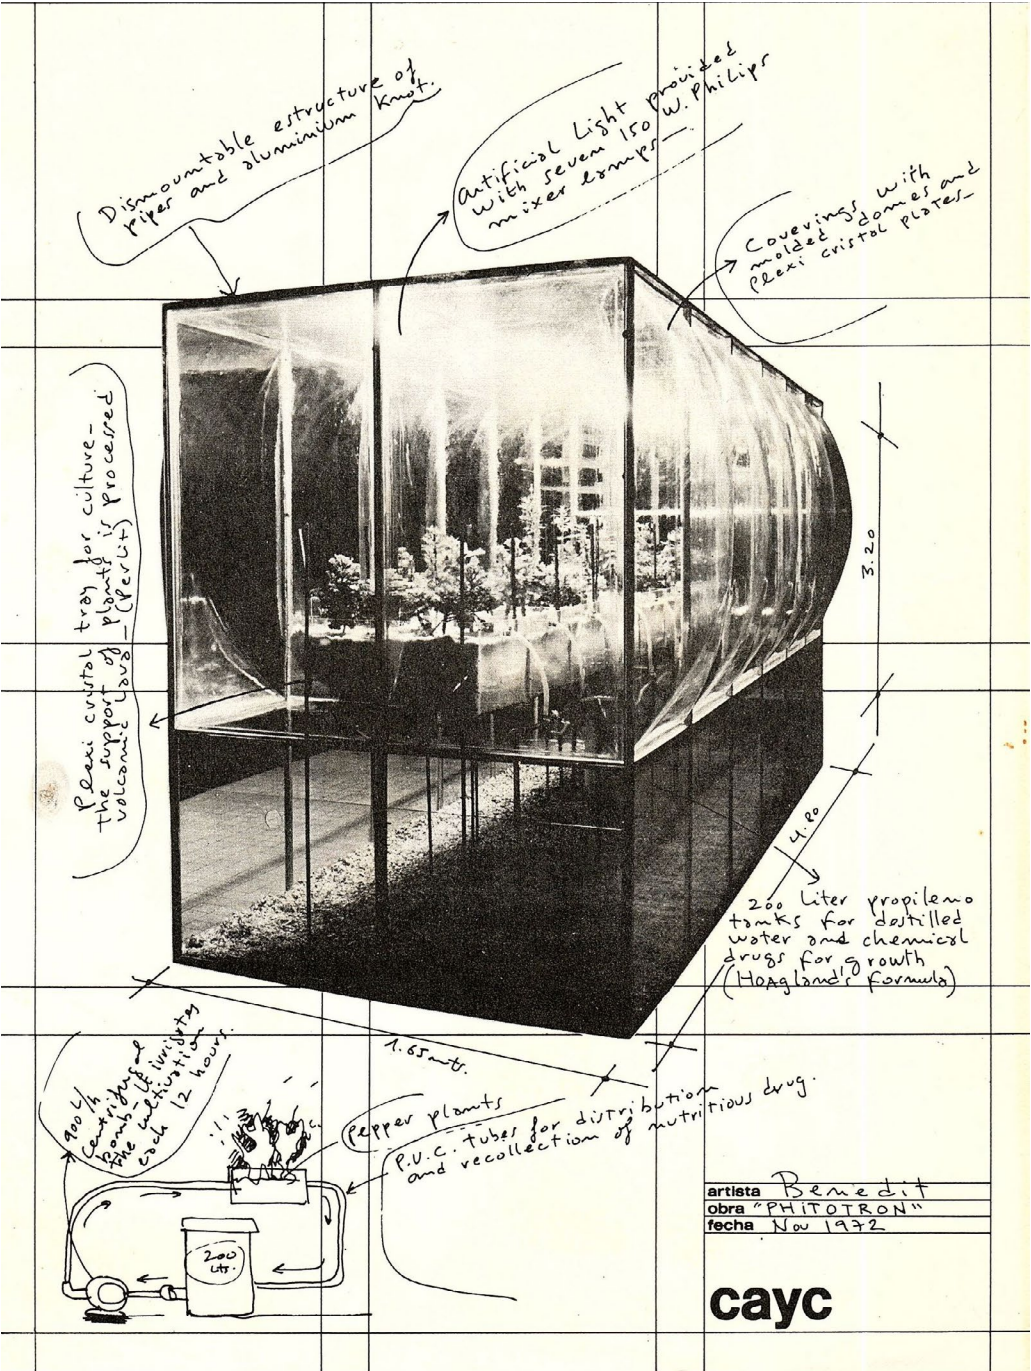 Dismountable estructure of
pipes and aluminium knot.
Artificial Light provided
with seven 150 W. Philips
mixer lamps
Coverings with
molded domes and
plexi cristal plates
Plexi cristal tray for culture
the support of plants is processed
volcanic lava (Perlit)
3.20
4.80
200 Liter propileno
tanks for destilled
water and chemical
drugs for growth
(HOAgland's formula)
1.65 mts.
900 L/h
centrifugal
bomb - It irrigates
the cultivation
each 12 hours.
pepper plants
P.V.C. tubes for distribution
and recollection of nutritious drug.
200
Lts.
artista Benedit
obra "PHITOTRON"
fecha Nov 1972
cayc